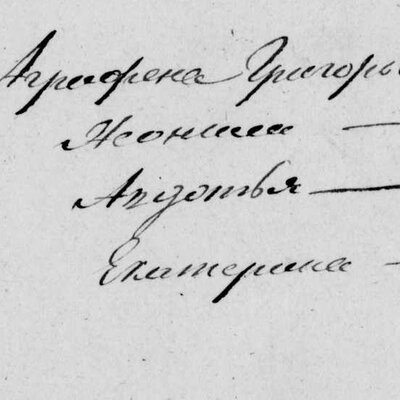 Аграфена Григорь
Неонила —
Авдотья —
Екатерина -